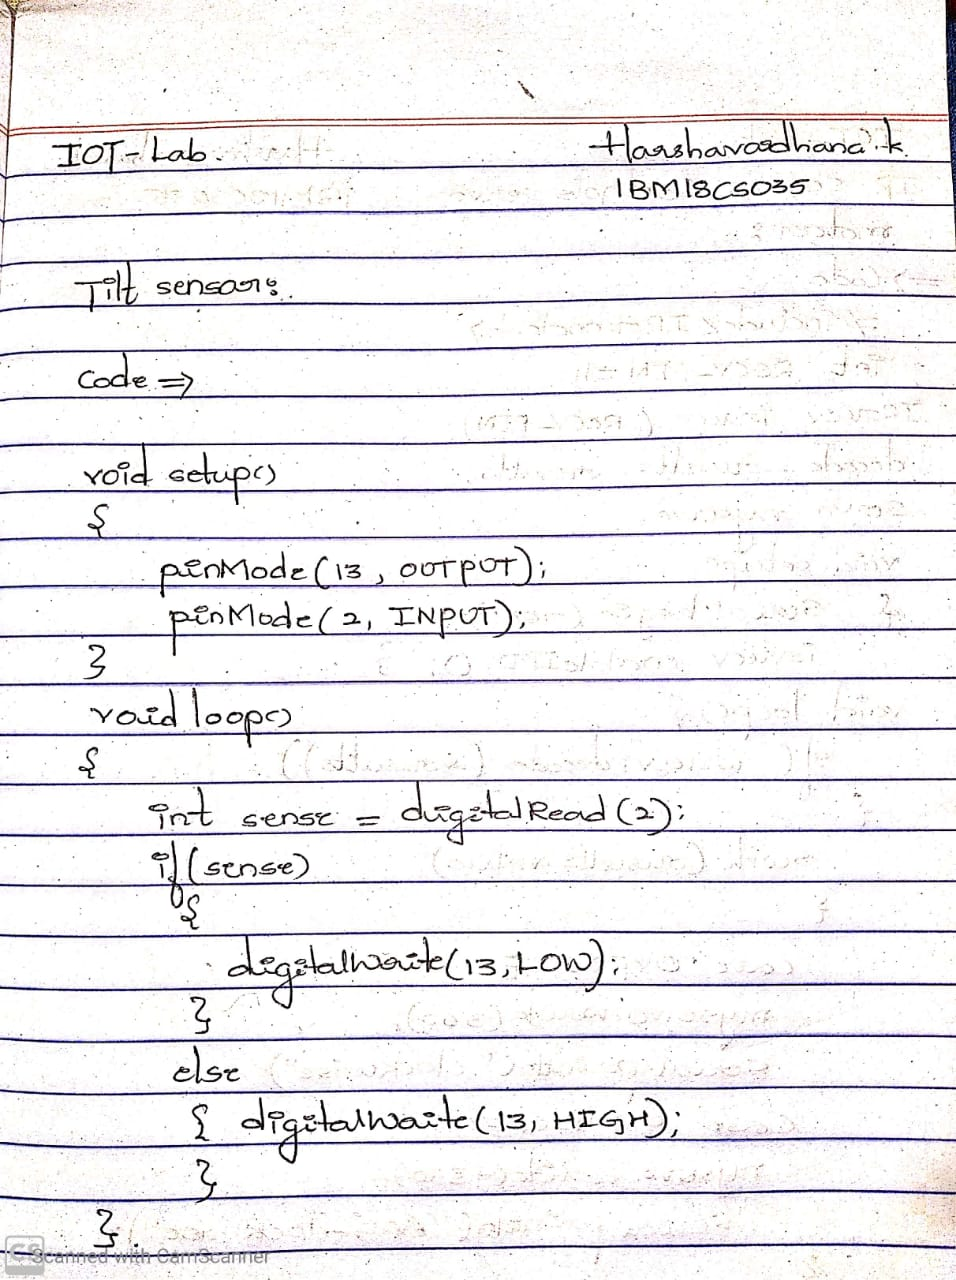 IOT-Lab.
Harshavardhana.k.
1BM18CS035
Tilt sensor:
Code =>
void setup()
{
pinMode(13, OUTPUT);
pinMode(2, INPUT);
}
void loop()
{
int sense = digitalRead(2);
if(sense)
{
digitalWrite(13, LOW);
}
else
{ digitalWrite(13, HIGH);
}
}
CS Scanned with CamScanner